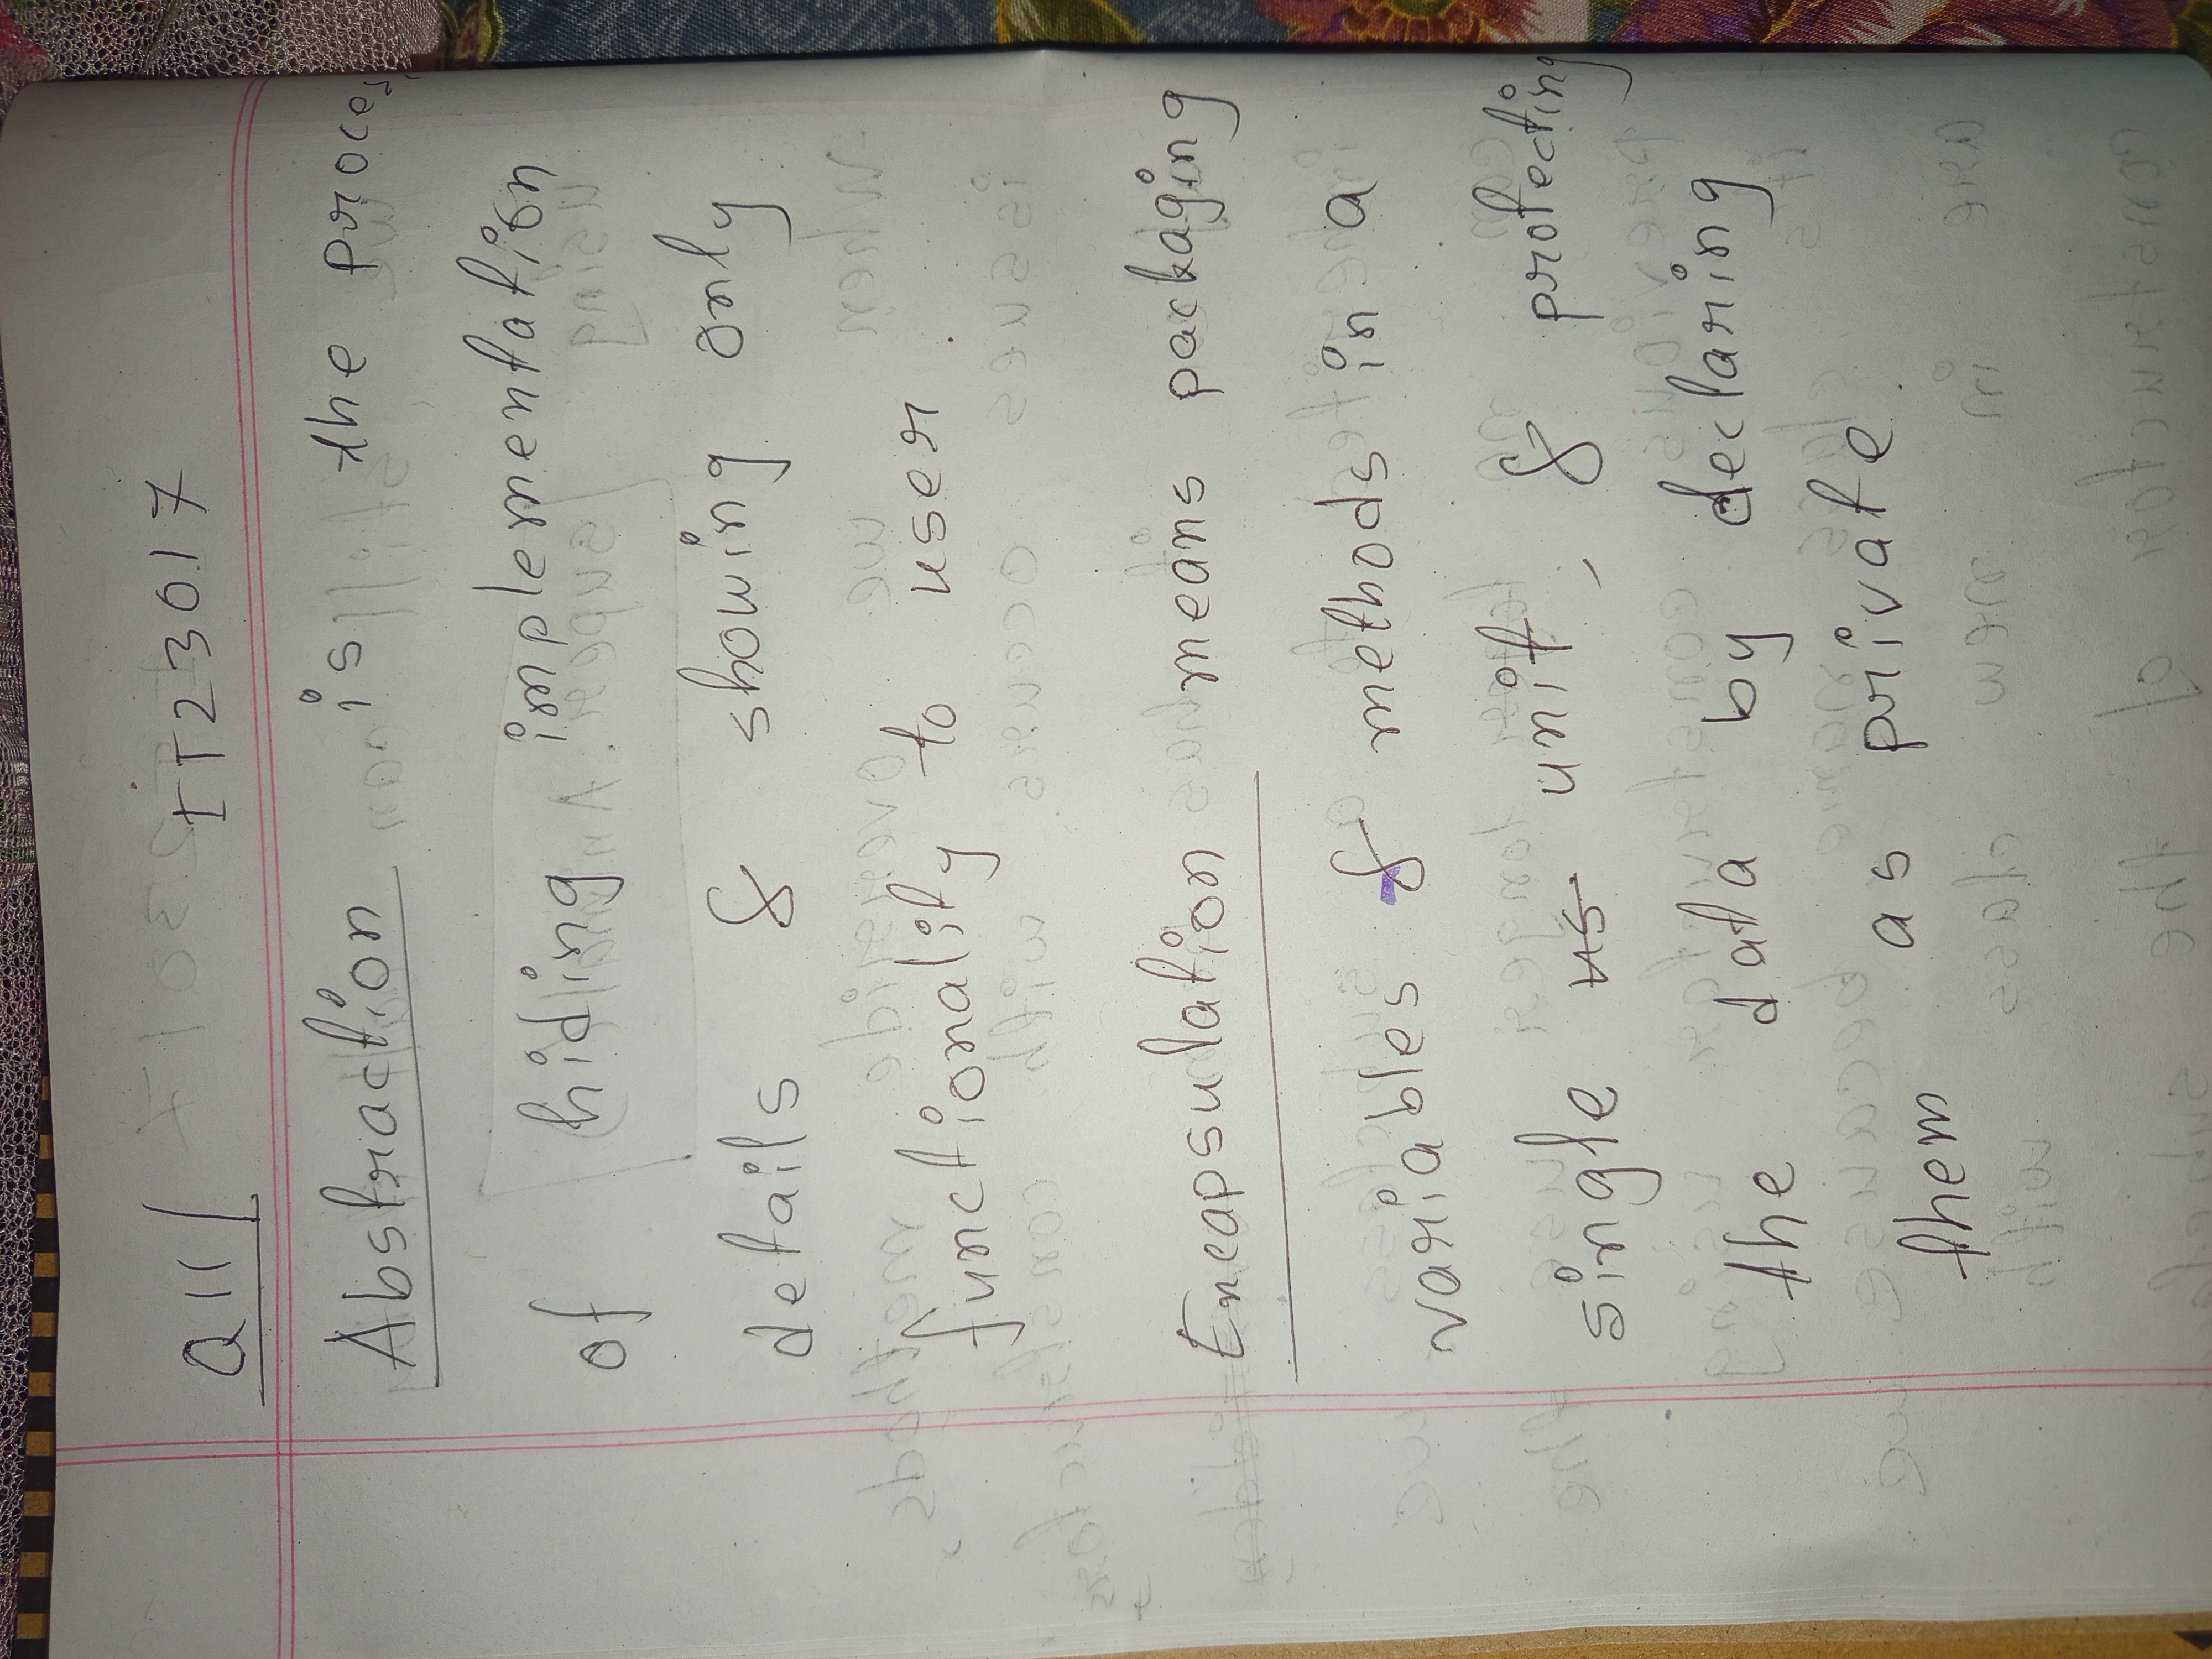 Q11/ IT23017
Abstraction is the proces
of hiding implementation
details & showing only
functionality to user.
Encapsulation means packaging
variables & methods in a
single us unit, & protecting
the data by declaring
them as private.